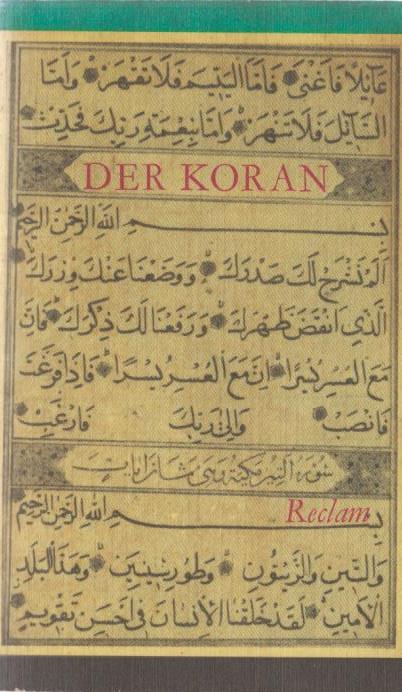 عَآئِلًا فَاَغْنٰى فَاَمَّا الْيَتِيْمَ فَلَا تَقْهَرْ وَاَمَّا
السَّآئِلَ فَلَا تَنْهَرْ وَاَمَّا بِنِعْمَةِ رَبِّكَ فَحَدِّثْ
DER KORAN
بِسْمِ اللهِ الرَّحْمٰنِ الرَّحِيْمِ
اَلَمْ نَشْرَحْ لَكَ صَدْرَكَ وَوَضَعْنَا عَنْكَ وِزْرَكَ
الَّذِى اَنْقَضَ ظَهْرَكَ وَرَفَعْنَا لَكَ ذِكْرَكَ فَاِنَّ
مَعَ الْعُسْرِ يُسْرًا اِنَّ مَعَ الْعُسْرِ يُسْرًا فَاِذَا فَرَغْتَ
فَانْصَبْ وَاِلٰى رَبِّكَ فَارْغَبْ
سُوْرَة
Reclam
بِسْمِ اللهِ الرَّحْمٰنِ الرَّحِيْمِ
وَالتِّيْنِ وَالزَّيْتُوْنِ وَطُوْرِ سِيْنِيْنَ وَهٰذَا الْبَلَدِ
الْاَمِيْنِ لَقَدْ خَلَقْنَا الْاِنْسَانَ فِى اَحْسَنِ تَقْوِيْمٍ